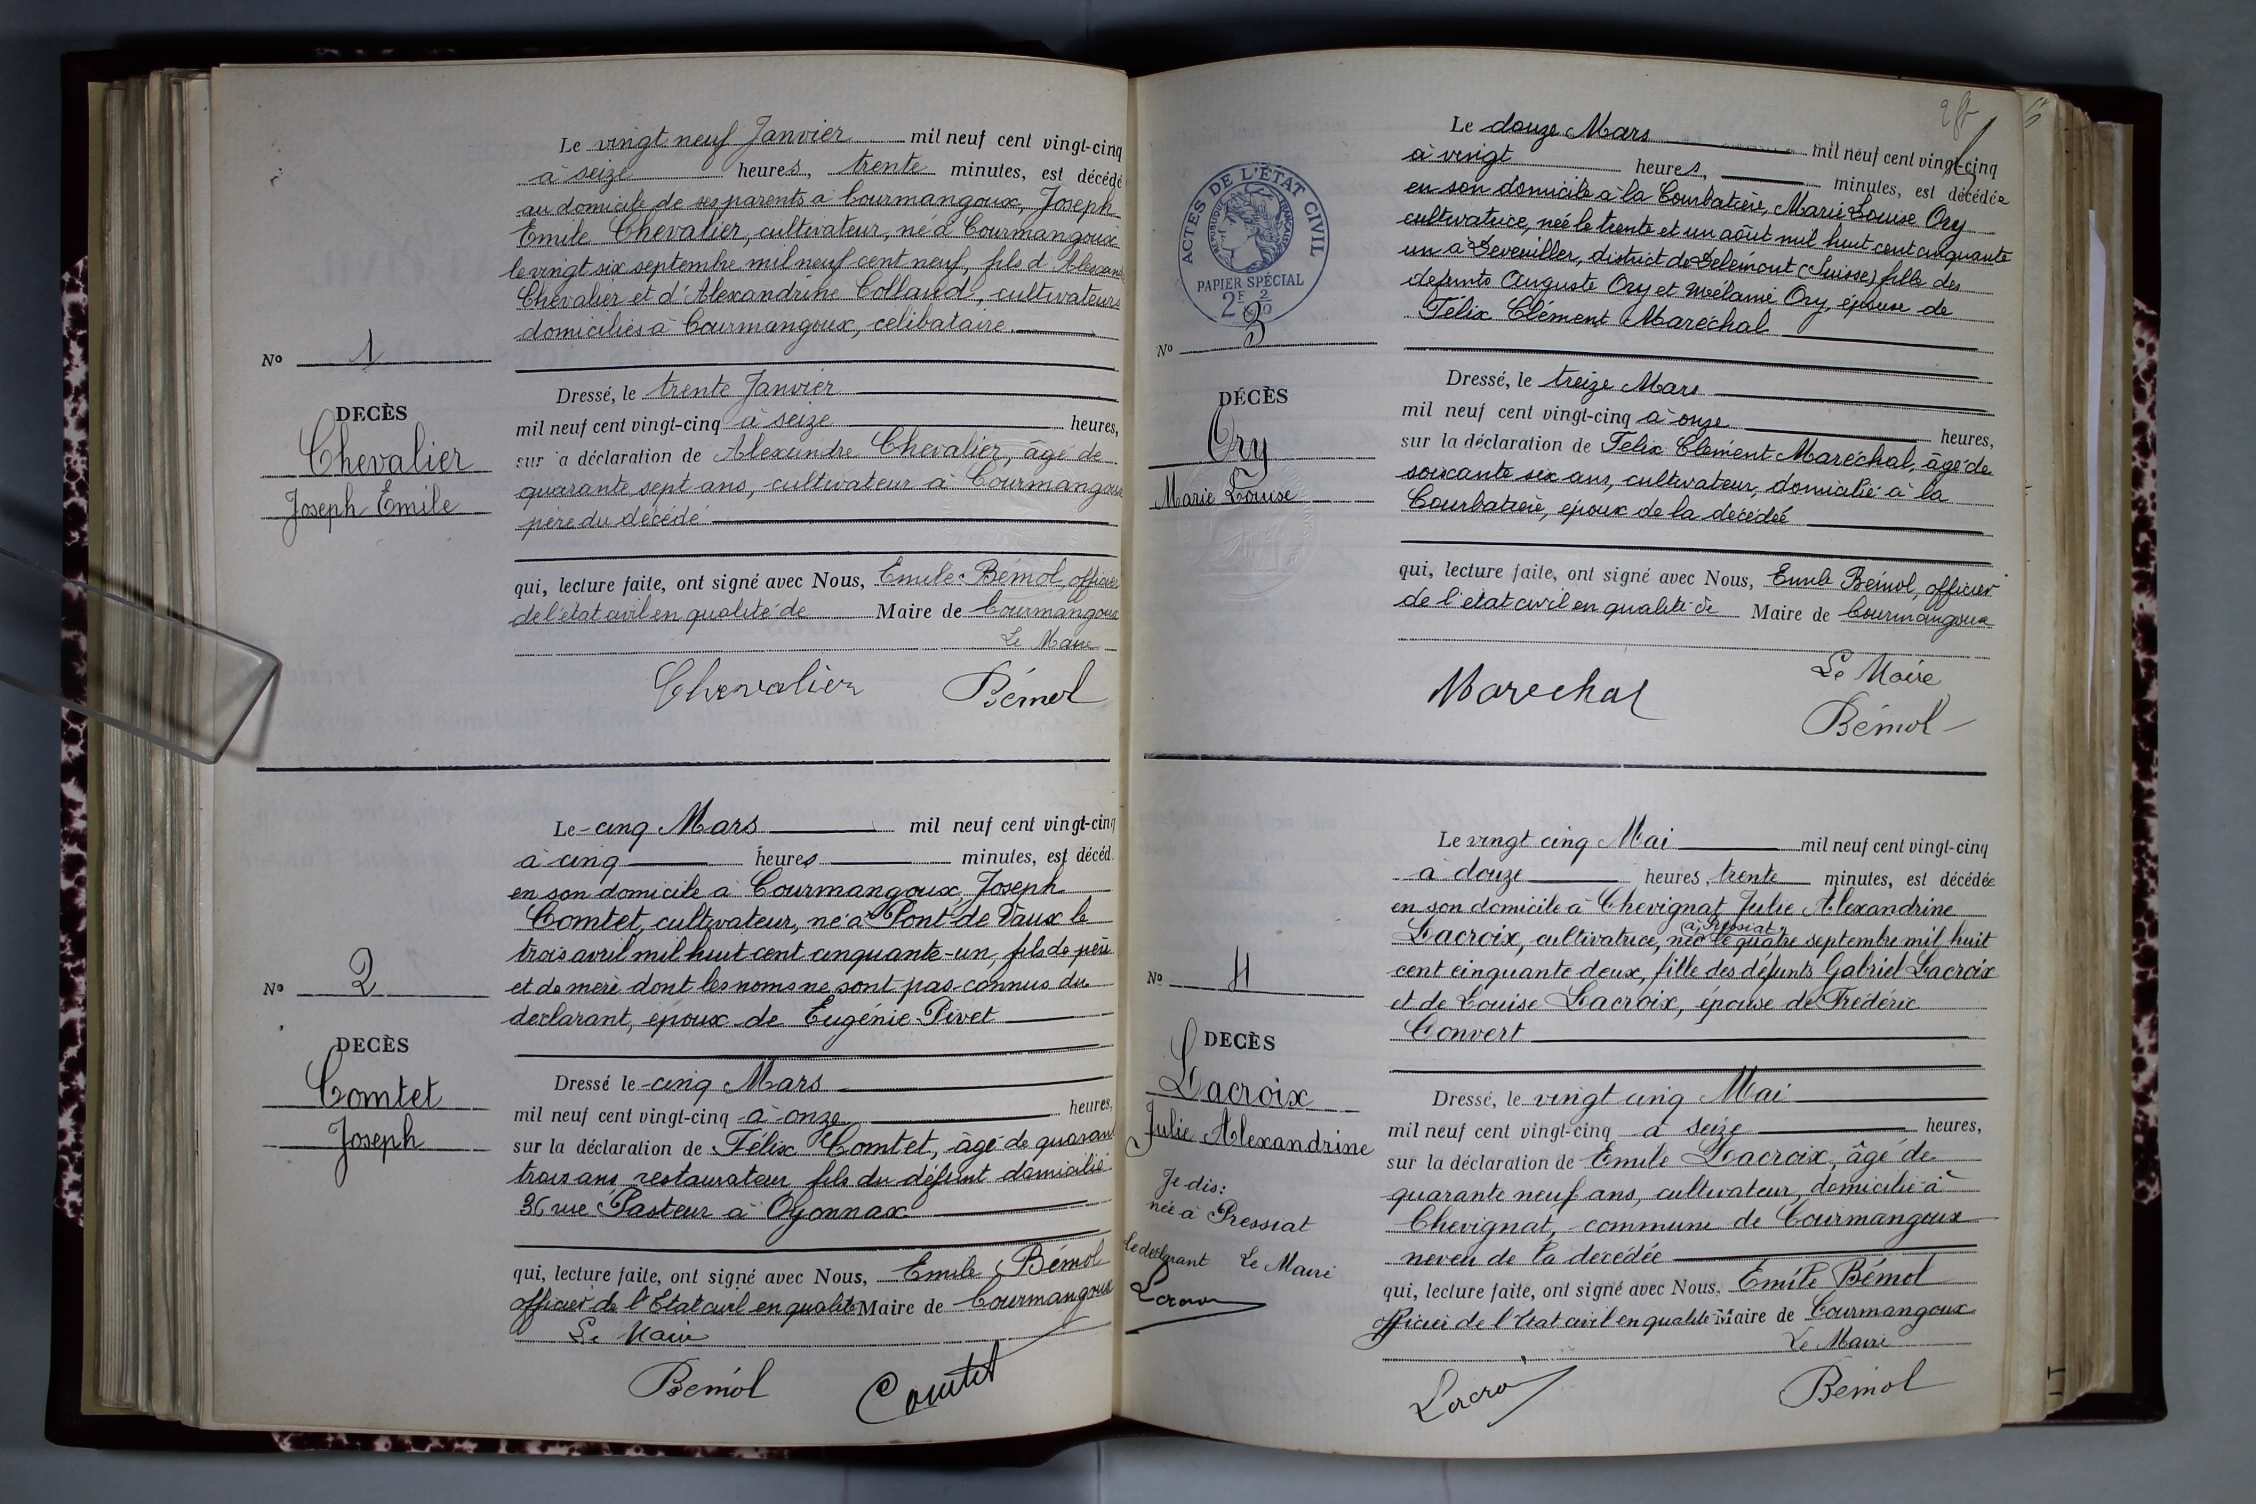 Le vingt neuf Janvier mil neuf cent vingt-cinq
à seize heures, trente minutes, est décédé
au domicile de ses parents à Courmangoux, Joseph
Emile Chevalier, cultivateur, né à Courmangoux
le vingt six septembre mil neuf cent neuf, fils d'Alexandre
Chevalier et d'Alexandrine Colland, cultivateurs
domiciliés à Courmangoux, célibataire.
No 1
DECÈS
Chevalier
Joseph Emile
Dressé, le trente Janvier
mil neuf cent vingt-cinq à seize heures,
sur la déclaration de Alexandre Chevalier, âgé de
quarante sept ans, cultivateur à Courmangoux
père du décédé
qui, lecture faite, ont signé avec Nous, Emile Bémol, officier
de l'état civil en qualité de Maire de Courmangoux
Le Maire
Chevalier Bémol
Le cinq Mars mil neuf cent vingt-cinq
à cinq heures minutes, est décéd
en son domicile à Courmangoux, Joseph
Comtet, cultivateur, né à Pont de Vaux le
trois avril mil huit cent cinquante-un, fils de père
et de mère dont les noms ne sont pas connus du
déclarant, époux de Eugénie Pivet
No 2
DECÈS
Comtet
Joseph
Dressé le cinq Mars
mil neuf cent vingt-cinq à onze heures,
sur la déclaration de Félix Comtet, âgé de quarante
trois ans, restaurateur, fils du défunt domicilié
36 rue Pasteur à Oyonnax
qui, lecture faite, ont signé avec Nous, Emile Bémol
officier de l'Etat civil en qualité Maire de Courmangoux
Le Maire
Bémol Comtet
Le douze Mars mil neuf cent vingt-cinq
à vingt heures, minutes, est décédée
en son domicile à la Courbatière, Marie Louise Ory
cultivatrice, née le trente et un août mil huit cent cinquante
un à Develier, district de Delémont (Suisse) fille des
défunts Auguste Ory et Mélanie Ory, épouse de
Félix Clément Maréchal
ACTES DE L'ÉTAT CIVIL
RÉPUBLIQUE FRANÇAISE
PAPIER SPÉCIAL
2F
No 3
DÉCÈS
Ory
Marie Louise
Dressé, le treize Mars
mil neuf cent vingt-cinq à onze heures,
sur la déclaration de Félix Clément Maréchal, âgé de
soixante six ans, cultivateur, domicilié à la
Courbatière, époux de la décédée
qui, lecture faite, ont signé avec Nous, Emile Bémol, officier
de l'état civil en qualité de Maire de Courmangoux
Le Maire
Marechal Bémol
Le vingt cinq Mai mil neuf cent vingt-cinq
à douze heures, trente minutes, est décédée
en son domicile à Chevignat Julie Alexandrine
à Pressiat
Lacroix, cultivatrice, née le quatre septembre mil huit
cent cinquante deux, fille des défunts Gabriel Lacroix
et de Louise Lacroix, épouse de Frédéric
Convert
No 4
DECÈS
Lacroix
Julie Alexandrine
Je dis:
née à Pressiat
Le déclarant Le Maire
Lacroix
Dressé, le vingt cinq Mai
mil neuf cent vingt-cinq à seize heures,
sur la déclaration de Emile Lacroix, âgé de
quarante neuf ans, cultivateur, domicilié à
Chevignat, commune de Courmangoux
neveu de la décédée
qui, lecture faite, ont signé avec Nous, Emile Bémol
officier de l'état civil en qualité Maire de Courmangoux
Le Maire
Lacroix Bémol